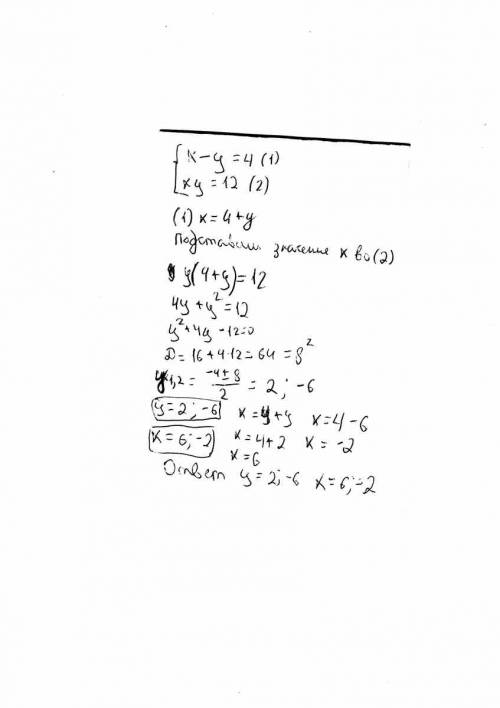 x – y = 4 (1)
xy = 12 (2)
(1) x = 4 + y
Подставим значение x во (2)
y(4+y) = 12
4y + y² = 12
y² + 4y - 12 = 0
D = 16 + 4·12 = 64 = 8²
y1,2 = (-4 ± 8)/2 = 2; -6
y = 2; -6 x = 4 + y x = 4 - 6
x = 6; -2 x = 4 + 2 x = -2
x = 6
Ответ y = 2; -6 x = 6; -2